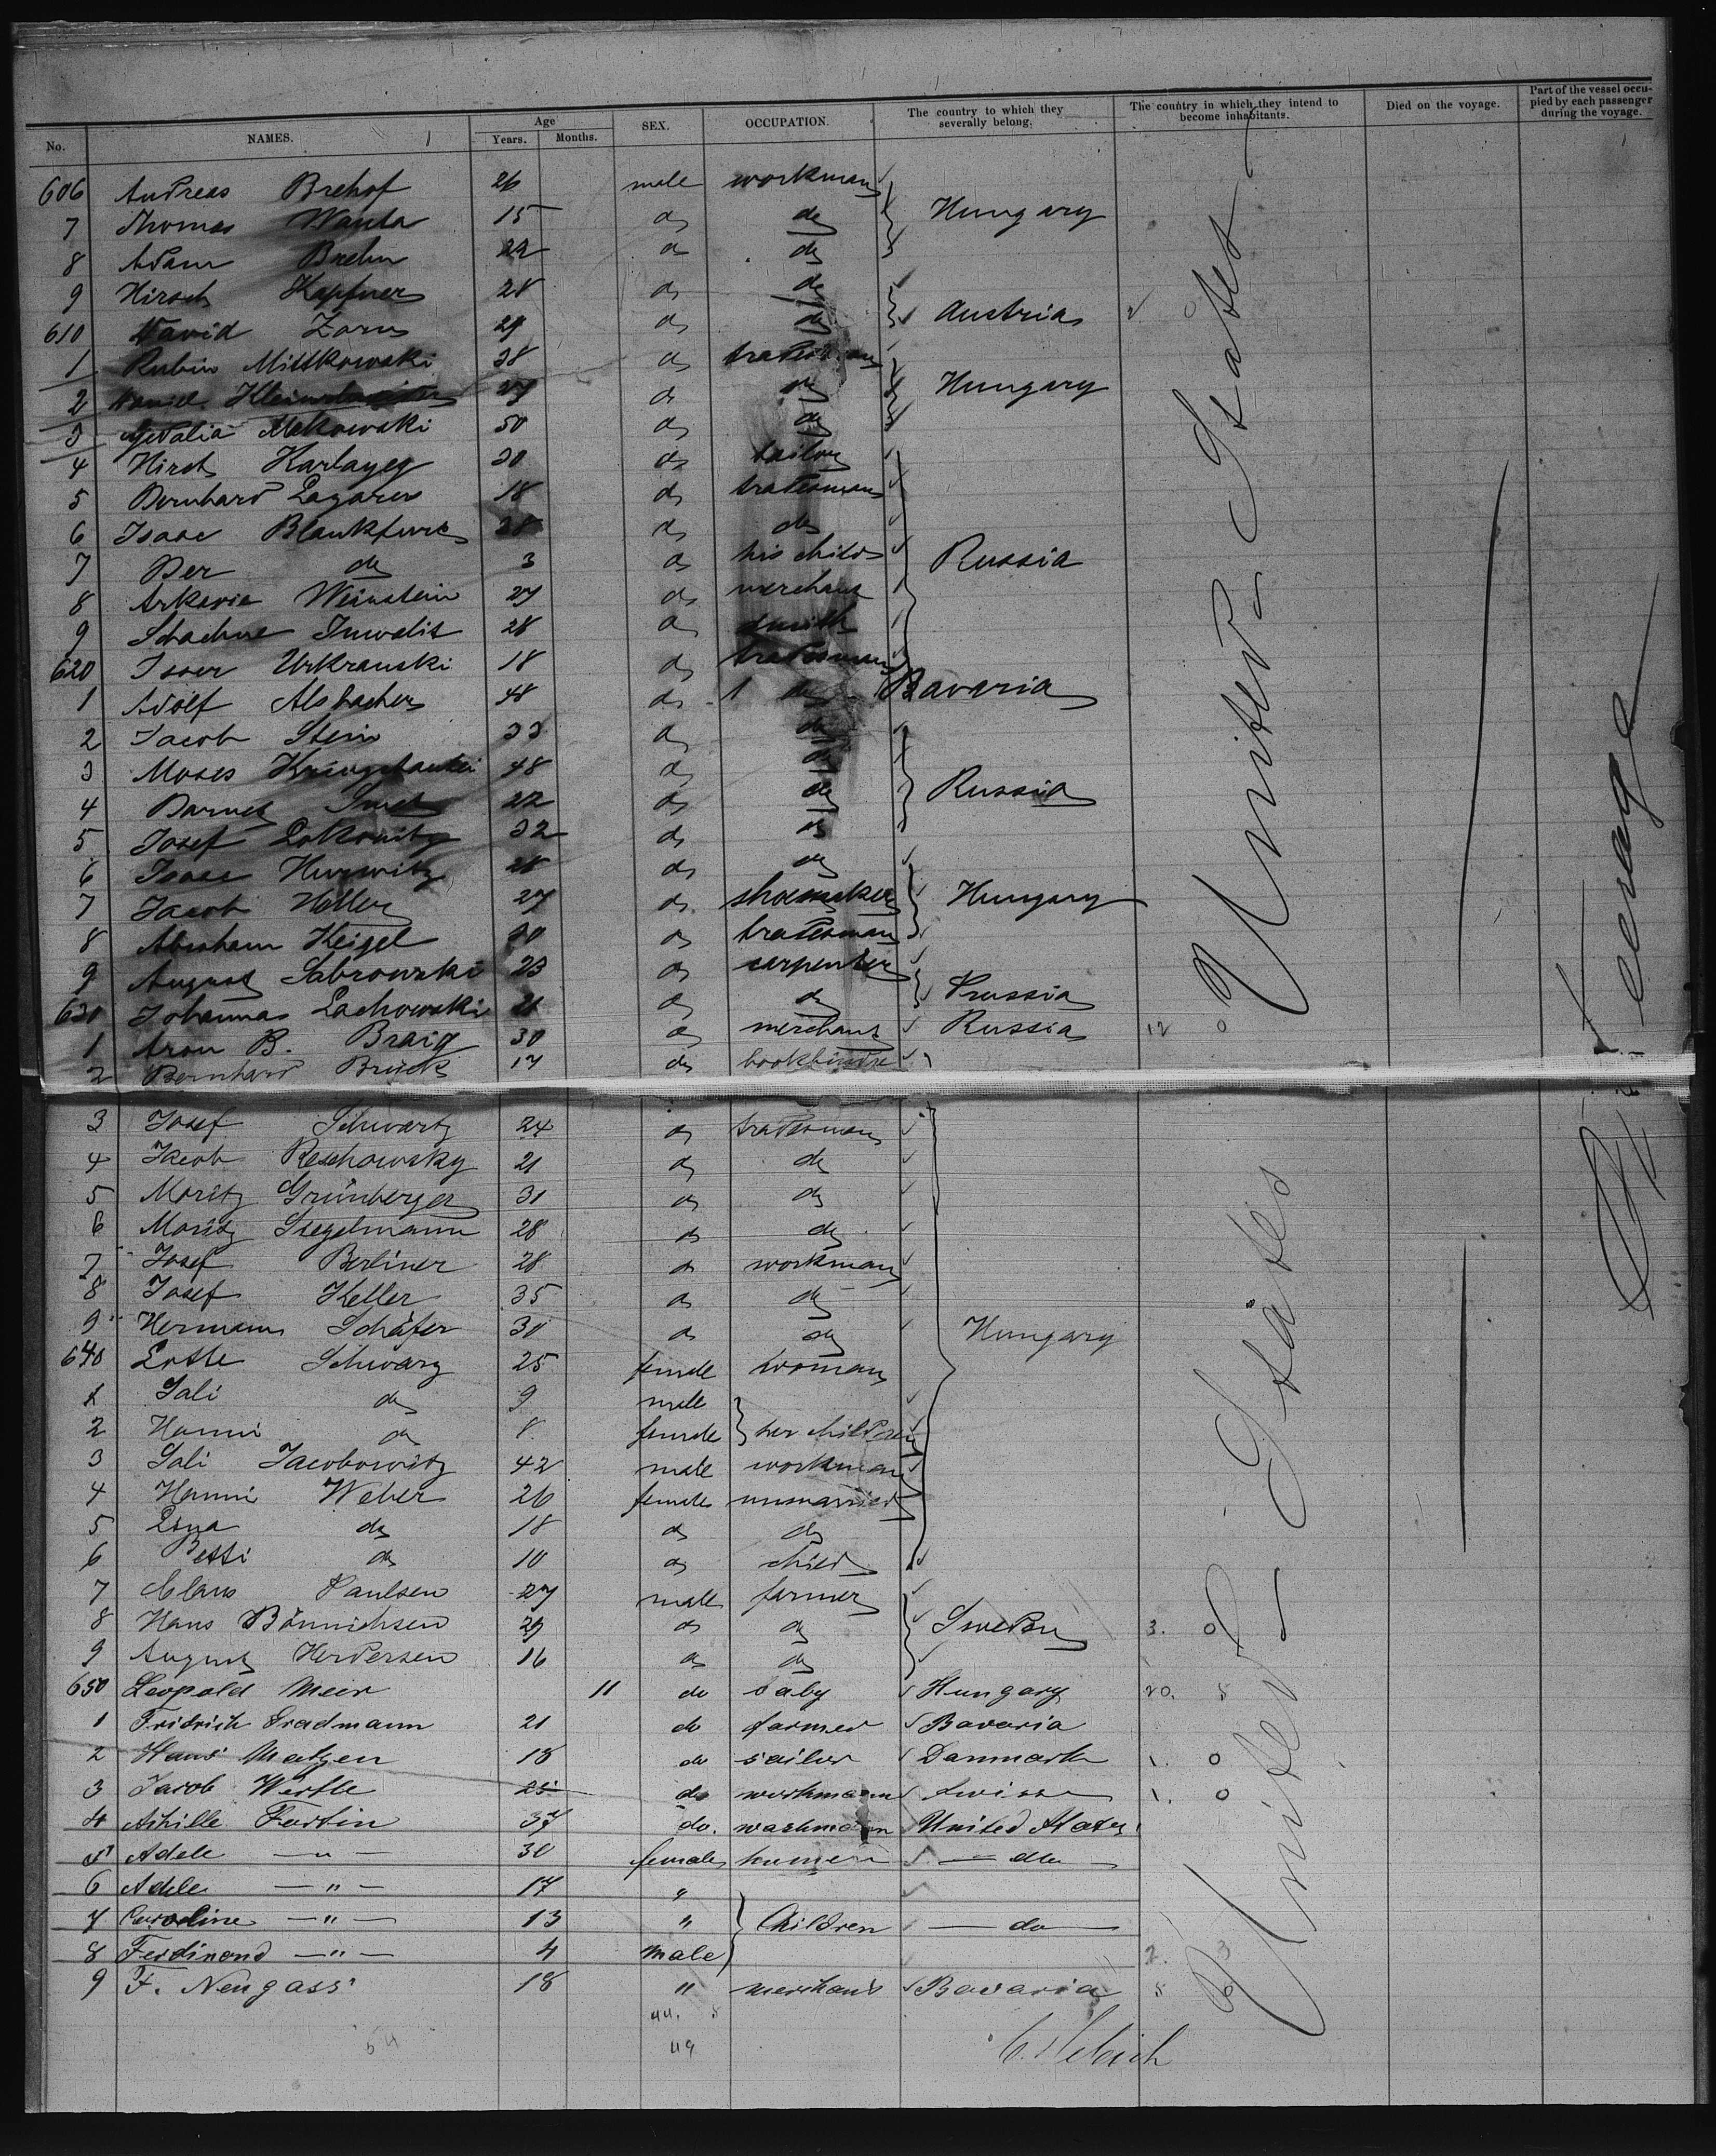 No. NAMES. Age Years. Months. SEX. OCCUPATION. The country to which they severally belong. The country in which they intend to become inhabitants. Died on the voyage. Part of the vessel occupied by each passenger during the voyage.
606 Andreas Brehof 26 male workman
7 Thomas Wanta 15 do do Hungary
8 Adam Brehn 22 do do
9 Hirsch 28 do do
610 David Zorn 29 do do Austria
1 Rubin Mittkowski 38 do tradesman
2 Daniel 27 do do Hungary
3 Gedalia Makowski 50 do do
4 Hirsch Karlayeg 30 do tailor
5 Bernhard Lazarus 18 do tradesman
6 Isaac 38 do do
7 Ber do 3 do his child Russia
8 Arkavie Weinstein 27 do merchant
9 Schachne Inwalit 28 do smith
620 Isser Urkranski 18 do tradesman
1 Adolf Alsbacher 48 do 1 do Bavaria
2 Jacob Stein 33 do do
3 Moses 48 do do
4 22 do do Russia
5 Josef 32 do do
6 Isaac Hurwitz 28 do do
7 Jacob Heller 27 do shoemaker Hungary
8 Abraham Keigel 30 do tradesman
9 August Sabrowski 23 do carpenter
630 Johannas Lachowski 21 do do Prussia
1 Aron B. Braig 30 do merchant Russia 12 0
2 Bernhard Brück 17 do bookbinder
3 Josef Schwartz 24 do tradesman
4 Jacob Reschowsky 21 do do
5 Moritz Grünberger 31 do do
6 Moritz Stegelmann 28 do do
7 Josef Berliner 28 do workman
8 Josef Keller 35 do do
9 Hermann Schäfer 30 do do Hungary
640 Schwarz 25 female woman
1 Sali do 9 male
2 Hanni do 8 female her children
3 Sali Jacobowitz 42 male workman
4 Hanni Weber 26 female unmarried
5 do 18 do do
6 Betti do 10 do child
7 Claus Paulsen 27 male farmer
8 Hans Bönnichsen 29 do do Sweden 3. 0
9 August Herdersen 16 do do
650 Leopold Meir 11 do baby Hungary 20. 8
1 Fridrich Gradmann 21 do farmer Bavaria
2 Hans Matzen 18 do sailor Danmark 1. 0
3 Jacob Werfle 25 do workmann Swiss 1. 0
4 Achille Fortin 37 do. workmann United States
5 Adele — " — 30 female — do —
6 Adele — " — 17 "
7 Caroline — " — 13 " Children — do —
8 Ferdinand — " — 4 male 2. 3
9 F. Neugass 18 " merchant Bavaria 8
44. 8
54 49
United States
United States
Steerage